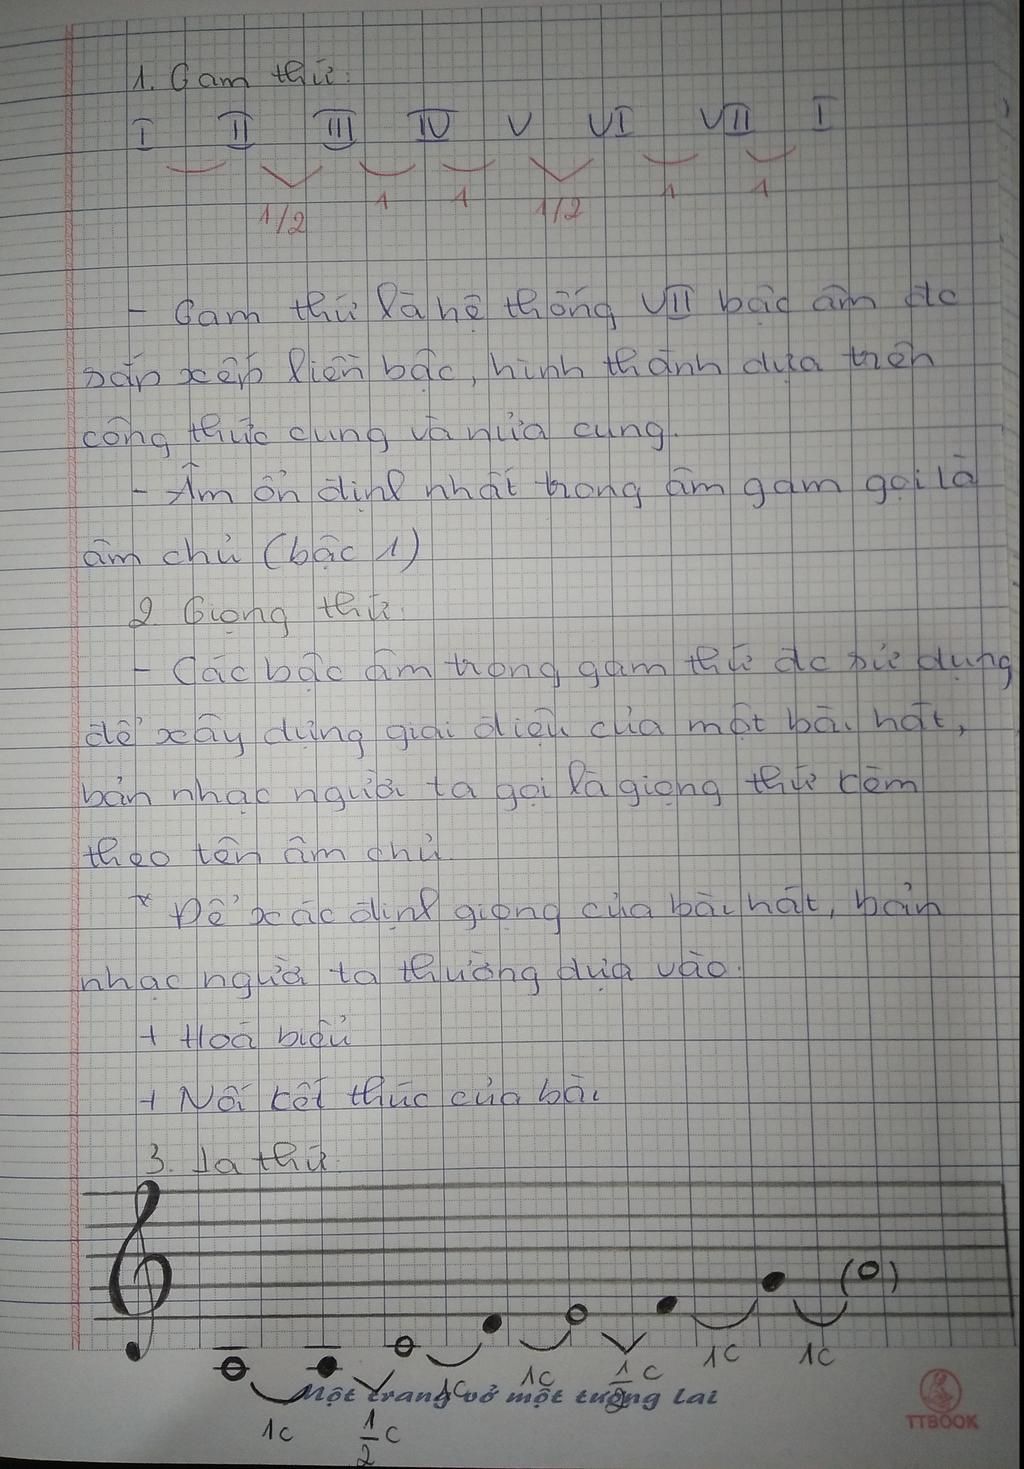 1. Gam thứ:
I II III IV V VI VII I
1/2 1 1 1/2 1 1
- Gam thứ là hệ thống VII bậc âm đc
sắp xếp liền bậc, hình thành dựa trên
công thức cung và nửa cung.
- Âm ổn định nhất trong âm gam gọi là
âm chủ (bậc 1)
2. Giọng thứ:
- Các bậc âm trong gam thứ đc sử dụng
để xây dựng giai điệu của một bài hát,
bản nhạc người ta gọi là giọng thứ kèm
theo tên âm chủ
* Để xác định giọng của bài hát, bản
nhạc người ta thường dựa vào:
+ Hoá biểu
+ Nối kết thúc của bài
3. La thứ:
1c 1/2c 1c 1c 1/2c 1c 1c
Một trang vở một tương lai
TTBOOK